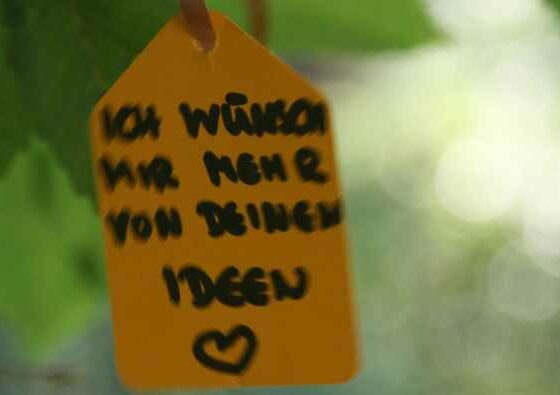 ICH WÜNSCH
MIR MEHR
VON DEINEN
IDEEN